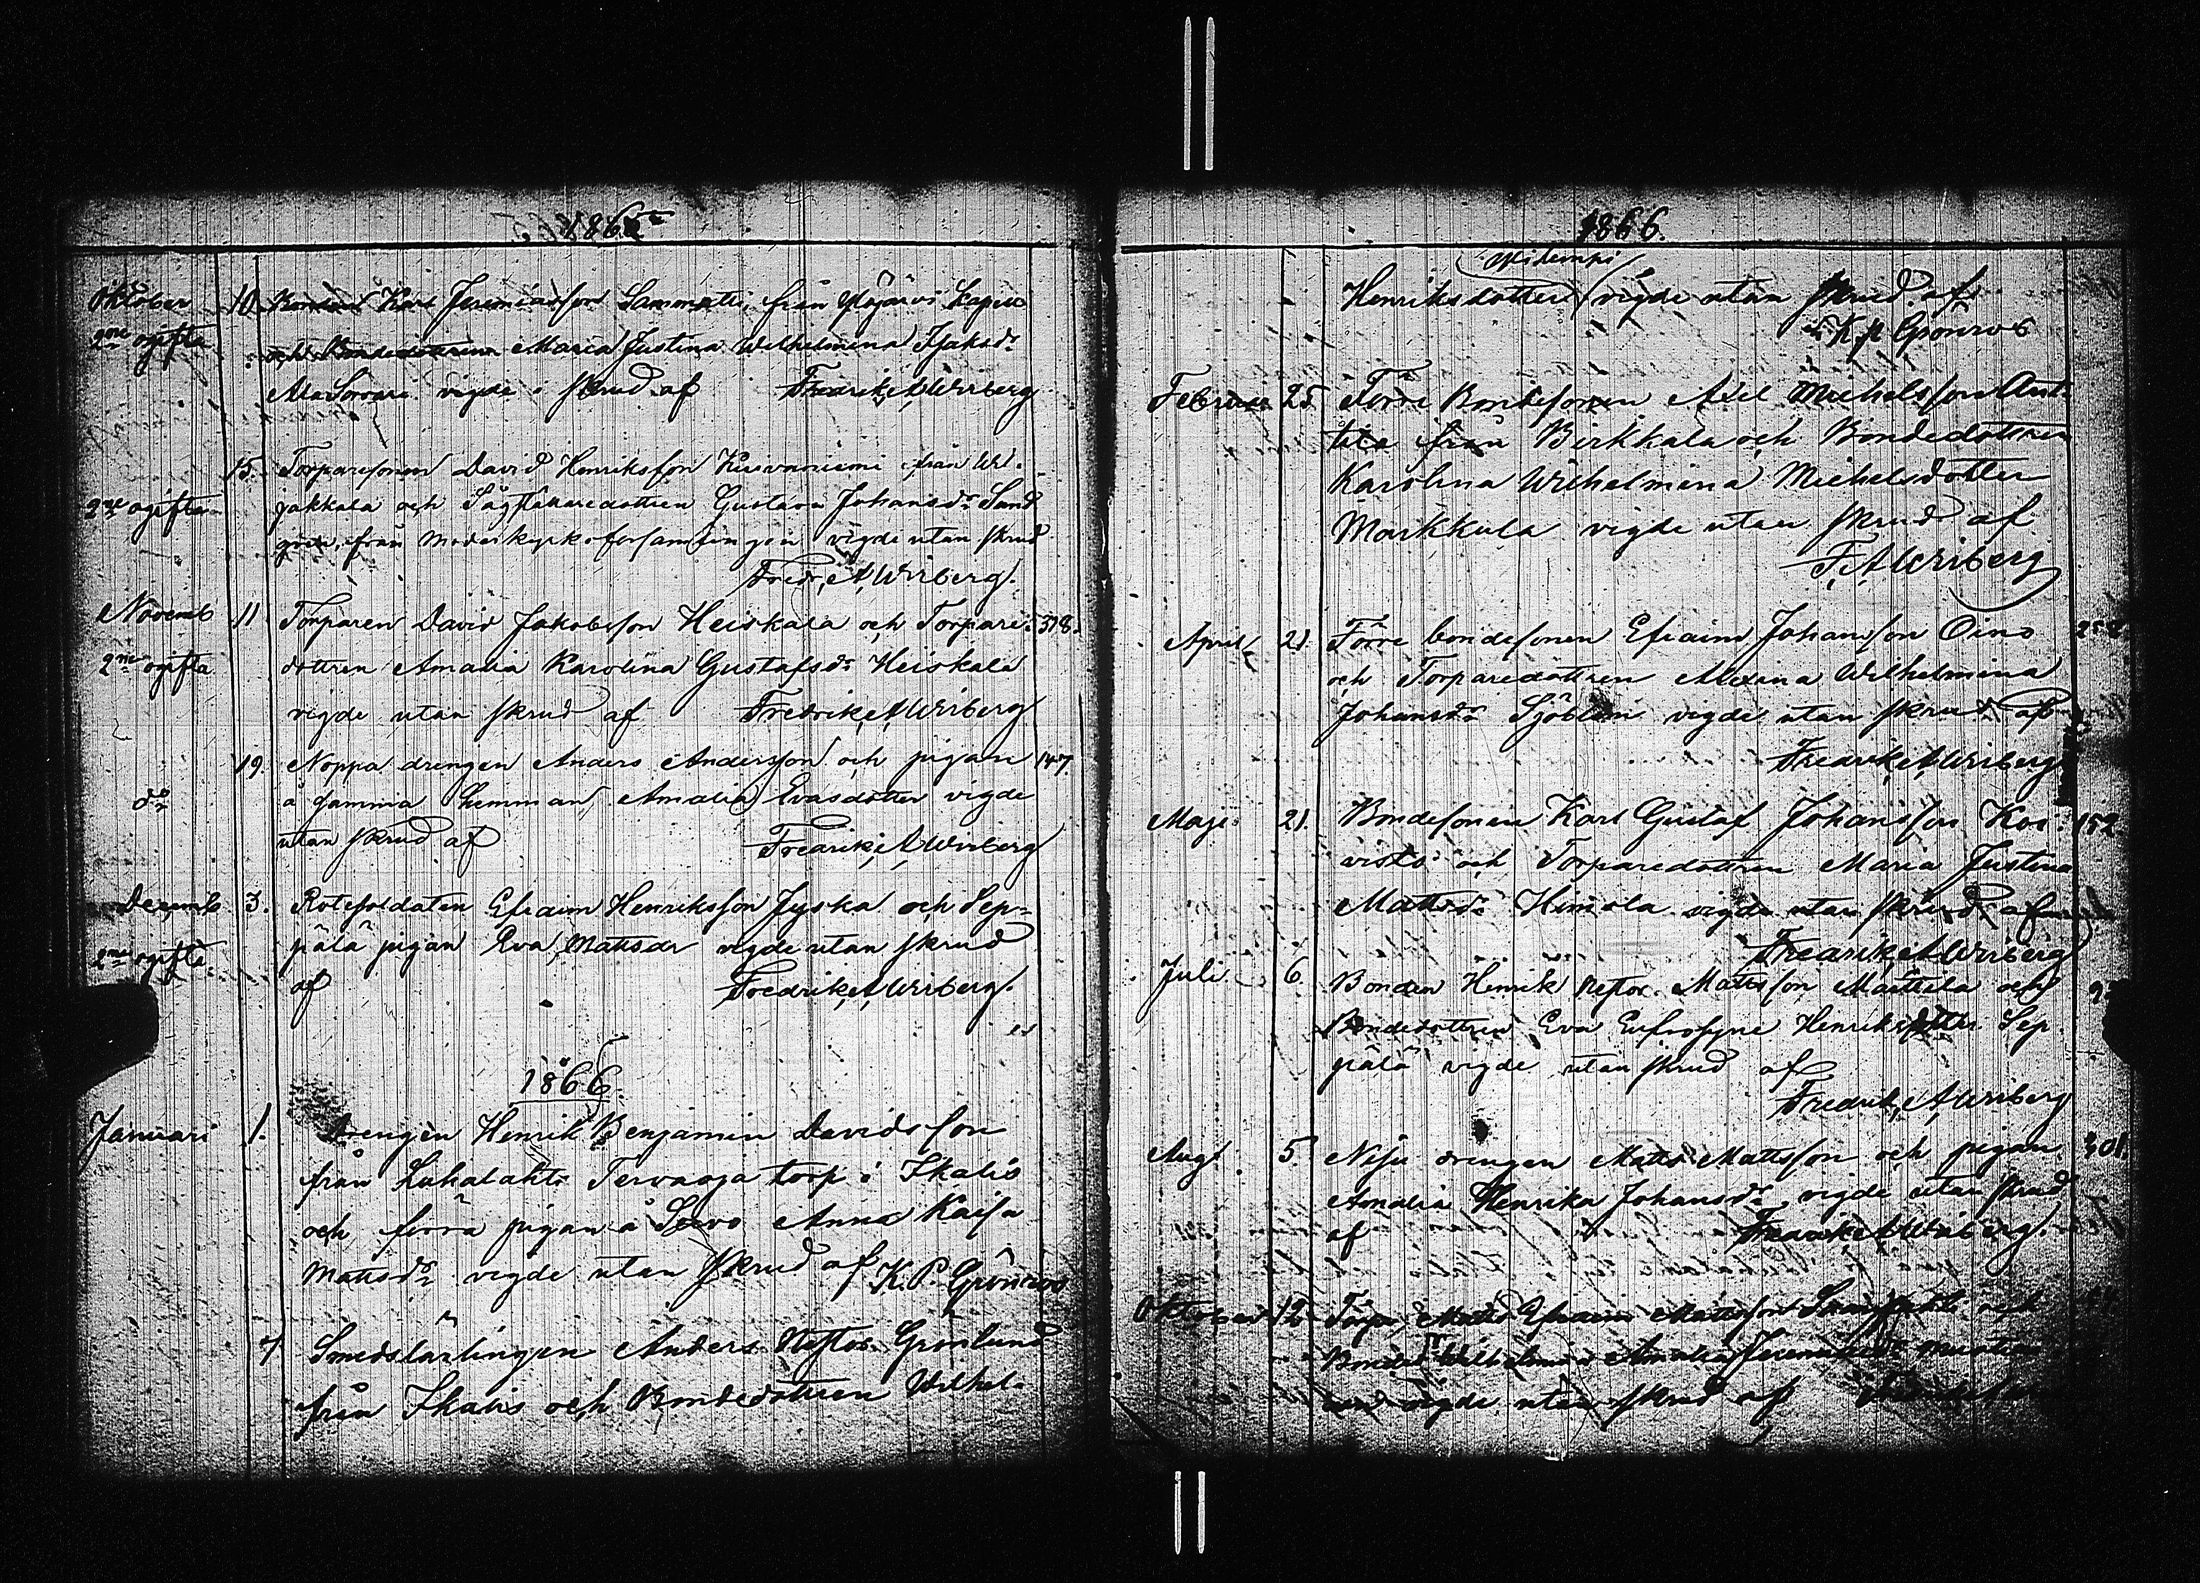 1865
Oktober 10. Bonden Karl Jeremiasson Sammatti från Ylöjärvi Capell
2ne ogifte och Bondedottren Maria Justina Wilhelmina Isaksdr
AlaSorvari vigde i skrud af Fredrik A Wriberg
15. Torparesonen David Henriksson Kiviniemi från
2ne ogifta jakkala och Sågställaredottren Gustava Johansdr Sand
gren, från Moderkyrkoförsamlingen vigde utan skrud
Fredr. A Wriberg.
Novemb 11 Torparen David Jakobsson Heiskala och Torpare- 318.
2ne ogifta dottren Amalia Karolina Gustafsdr Heiskala
vigde utan skrud af Fredrik A Wriberg
19. Noppa drengen Anders Andersson och pigan 147.
do å Jamma hemman, Amalia Evasdotter vigde
utan skrud af Fredrik A Wriberg
Decemb 3. Rotesoldaten Efraim Henriksson Jyska och Sep-
2ne ogifte pälä pigan Eva Mattsdr vigde utan skrud
af Fredrik A Wriberg.
1866.
Januari 1. Drengen Henrik Benjamin Davidsson
från Luhalahti Tervaoja torp i Ikalis
och förra pigan å Anna Kaisa
Mattsdr vigde utan skrud af K. P. Grönroos
7 Smedslärlingen Anders Nestor Grönlund
från Ikalis och Bondedottren Wilhel-
1866.
Henriksdotter vigde utan skrud af
K. P. Grönroos
Februari 25 Förre Bondesonen Axel Michelsson Ant-
tila från Birkkala och Bondedottren
Karolina Wilhelmina Michelsdotter
Markkula vigde utan skrud af
F. A Wriberg
April 21. Förre bondesonen Efraim Johansson Oino 252
och Torparedottren Alexana Wilhelmina
Johansdr Sjöblom vigde utan skrud af
Fredrik A Wriberg
Maji 21. Bondesonen Karl Gustaf Johansson Koi- 152
visto och Torparedottren Maria Justina
Mattsdr Himola vigde utan skrud af
Fredrik A Wriberg
Juli 6. Bonden Henrik Nestor Mattsson Mattila och
Bondedottren Eva Eufrosyne Henriksdotter Sep
pälä vigde utan skrud af
Fredrik A Wriberg
Aug. 5. Niju drengen Matts Mattsson och pigan 301
Amalia Henrika Johansdr vigde utan skrud
af Fredrik A Wriberg.
Oktober 12 Torp. Matts Efraim Mattsson och
Bonded. Wilhelmina Amalia
vigde utan skrud af